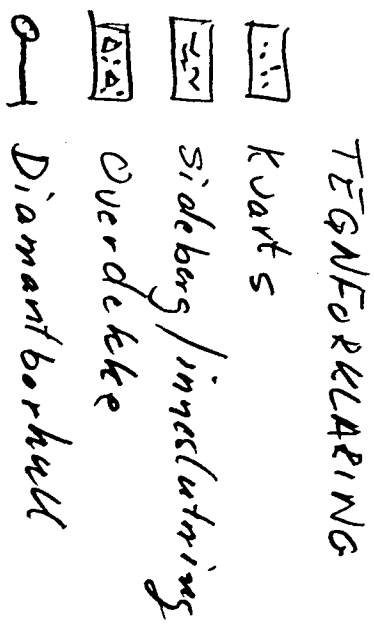 TEGNFORKLARING
Kvarts
Sideberg/inneslutning
Overdekke
Diamantborhull